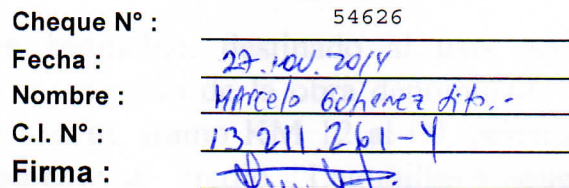 Cheque Nº : 54626
Fecha : 27. nov. 2014
Nombre : Marcelo Gutierrez
C.I. Nº : 13.211.261-4
Firma :